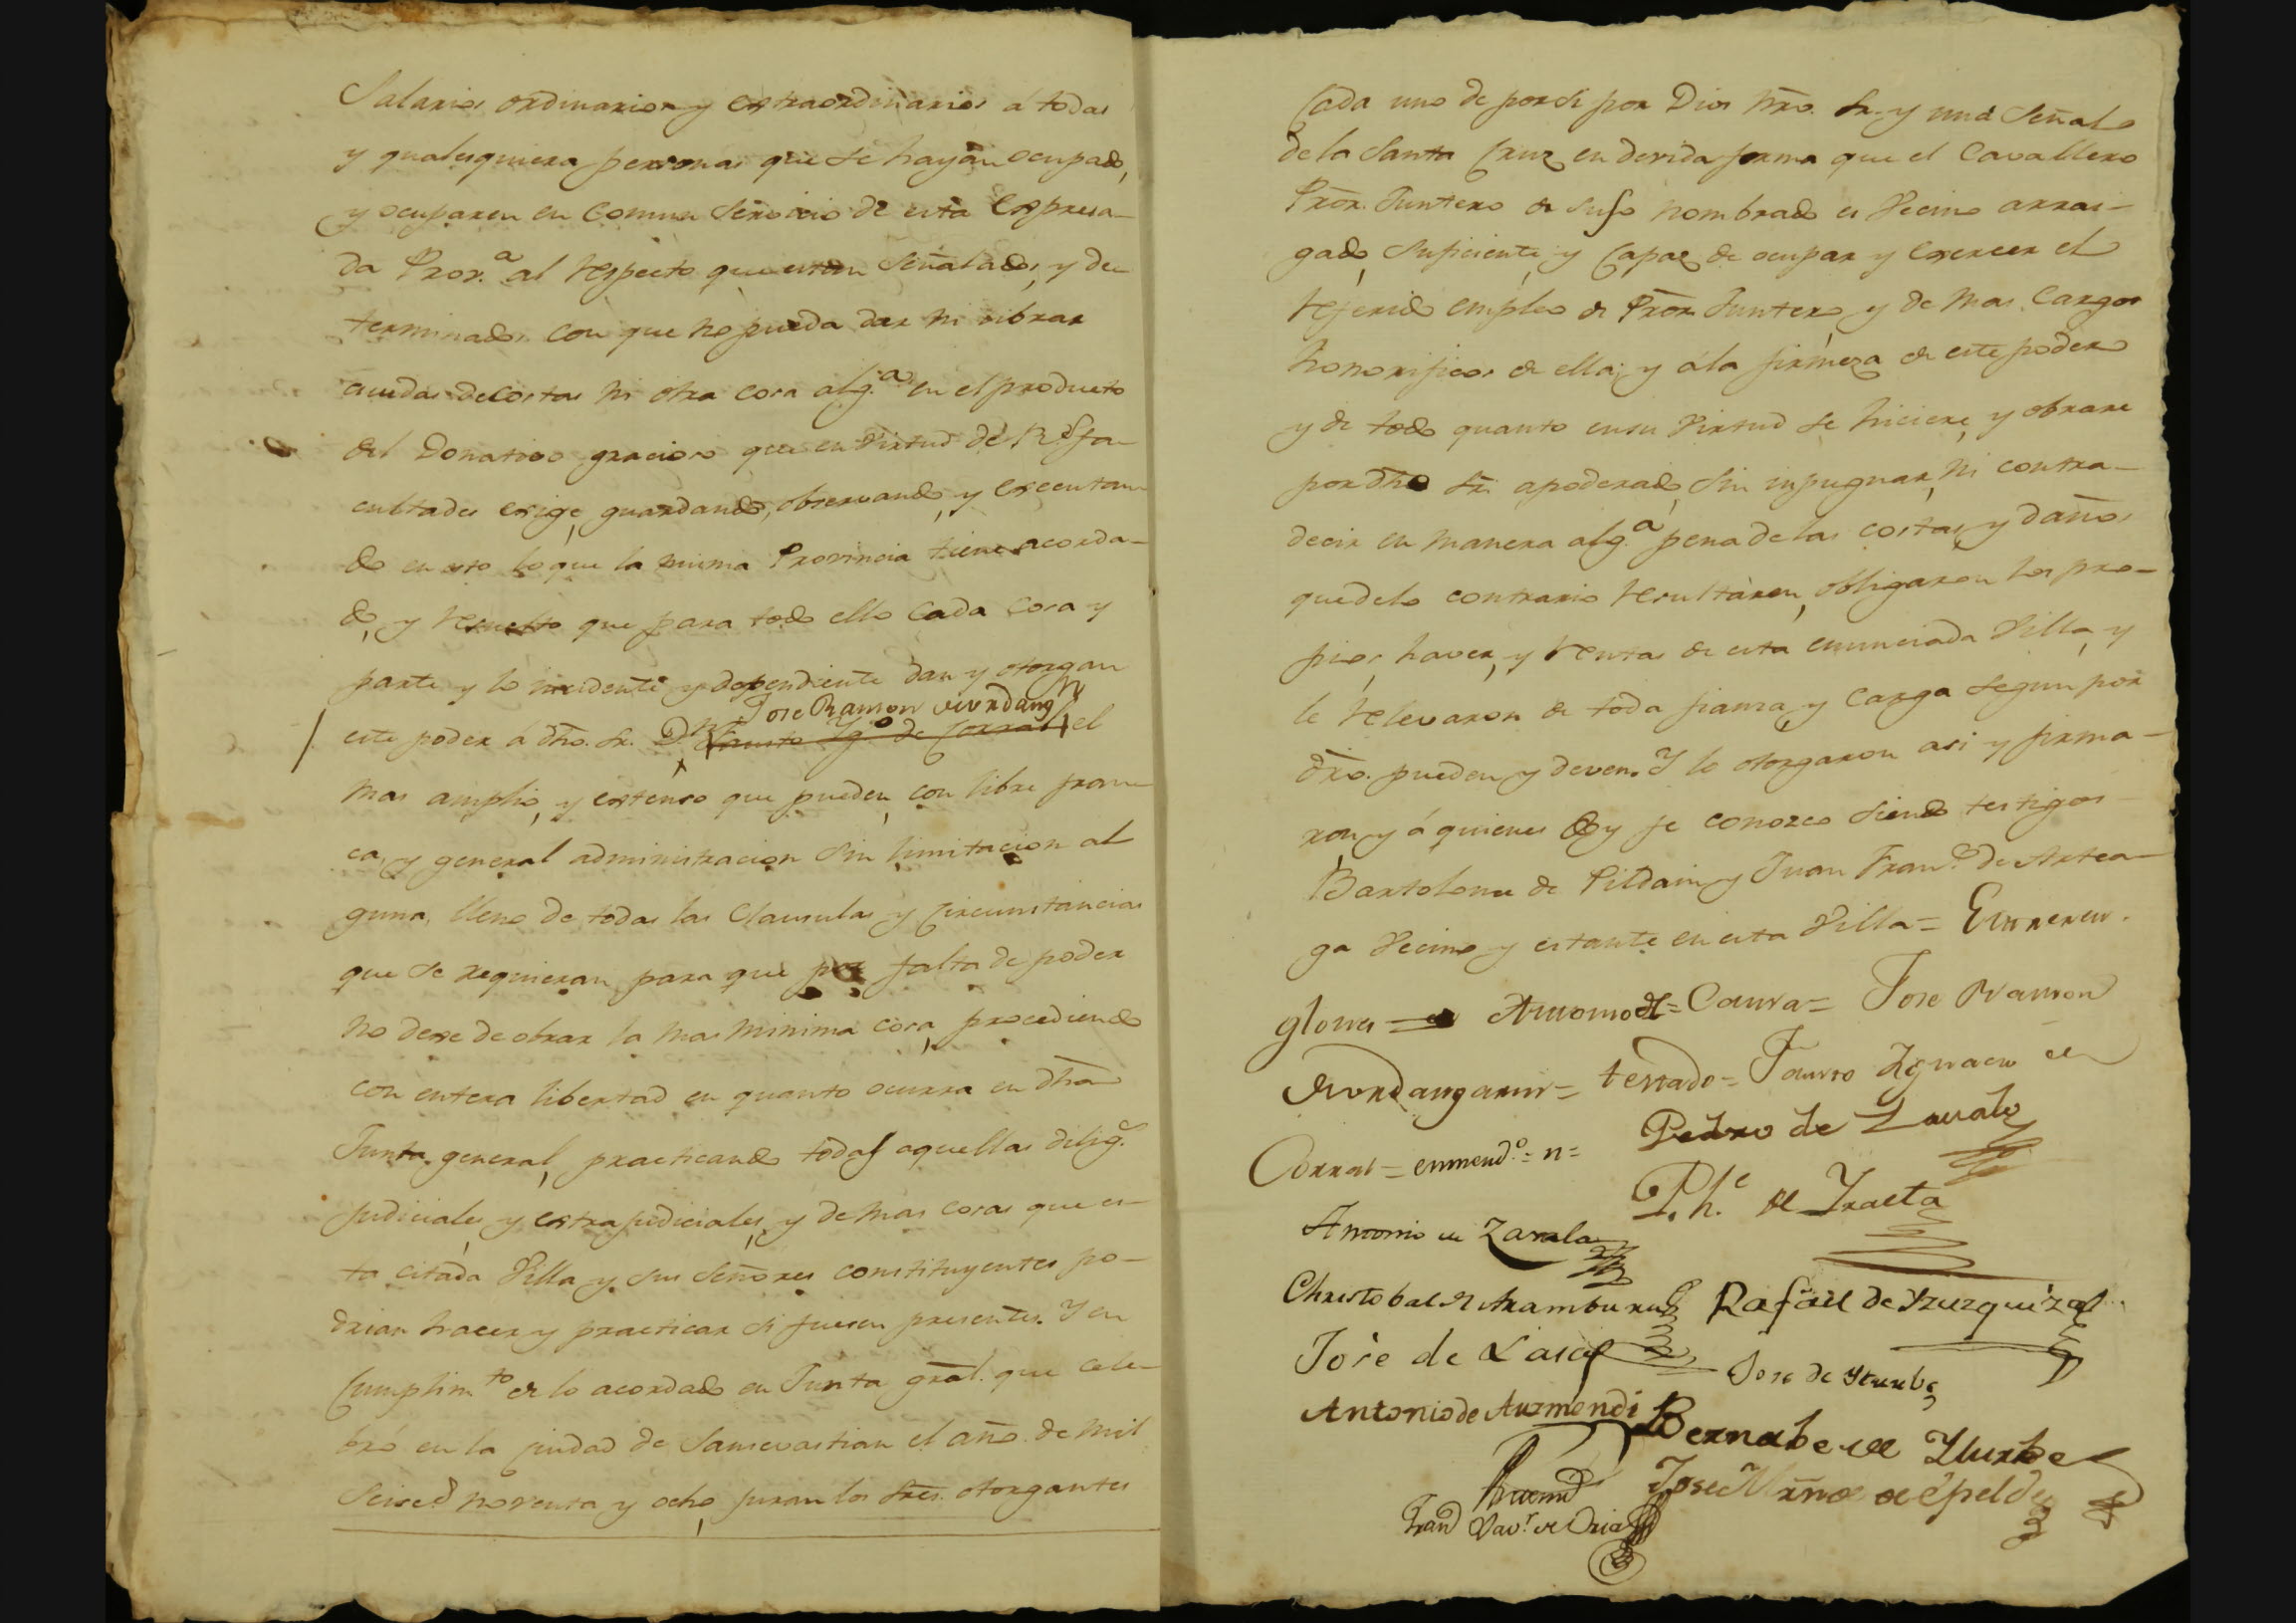 Salarios ordinarios y extraordinarios a todas
y qualesquiera personas que se hayan ocupado,
y ocuparen en comun servicio de esta expresa-
da Prov.ª al respecto que estan señalados, y de-
terminados con que no pueda dar ni librar
aiudas de costas ni otra cosa alg.ª en el producto
del Donativo gracioso que en virtud de R.s fa-
cultades exige, guardando, observando, y executan-
do en esto lo que la misma Provincia tiene acorda-
do, y resuelto que para todo ello cada cosa y
parte y lo incidente y dependiente dan y otorgan
Jose Ramon
este poder á dho. Sr. D.n Fausto Ig.o de Corral el
mas amplio, y extenso que pueden, con libre fran-
ca, y general administracion sin limitacion al
guna, lleno de todas las clausulas y circunstancias
que se requieran para que por falta de poder
no dexe de obrar la mas minima cosa, procediendo
con entera libertad en quanto ocurra en dha
Junta general, practicando todas aquellas dilig.s
judiciales, y extrajudiciales, y demas cosas que es-
ta citada Villa y sus señores constituyentes po-
drian hacer y practicar si fuesen presentes. Y en
Cumplim.to de lo acordado en Junta gral. que cele-
bró en la ciudad de Sansevastian el año de mil
Seisc.s noventa y ocho, juran los Sres. otorgantes
Cada uno de por si por Dios nro. Sr. y una Señal
de la Santa Cruz en devida forma que el Cavallero
Pror. Juntero de suso nombrado es Vecino arrai-
gado, suficiente, y capaz de ocupar y exercer el
referido empleo de Pror. Juntero, y demas cargos
honorificos de ella; y á la firmeza de este poder
y de todo quanto en su virtud se hiciere, y obrare
por dho Sr. apoderado, sin inpugnar, ni contra-
decir en manera alg.ª pena de las costas, y daños
que de lo contrario resultaren, obligaron los pro-
pios, haver, y rentas de esta enunciada Villa, y
le relevaron de toda fianza, y carga segun por
dro. pueden y deven. Y lo otorgaron asi y firma-
ron y á quienes doy fe conozco siendo testigos
Bartolome de Pildain y Juan Fran.co de Artea-
ga Vecino y estante en esta Villa=
Jose Ramon
testado= Fausto Ignacio de
Corral= enmend.o= n= Pedro de Zavala
Ph.e de Iraeta
Antonio de Zavala
Christobal de Aramburu Rafael de Yzuzquiza
Jose de Jose de Yturbe
Antonio de Aizmendi
Bernabe de Yturbe
Jose de Epelde
Fran.co Xav.r de